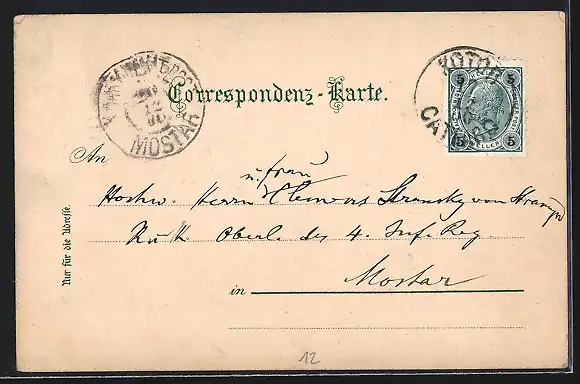 MOSTAR
KOTOR
CATTARO
5 5
5 HELLER 5
Correspondenz-Karte.
An
u. Frau
Hochw. Herrn Stransky von
K u K Oberlt. des 4. Inf. Reg.
Mostar
in
Nur für die Adresse.
12